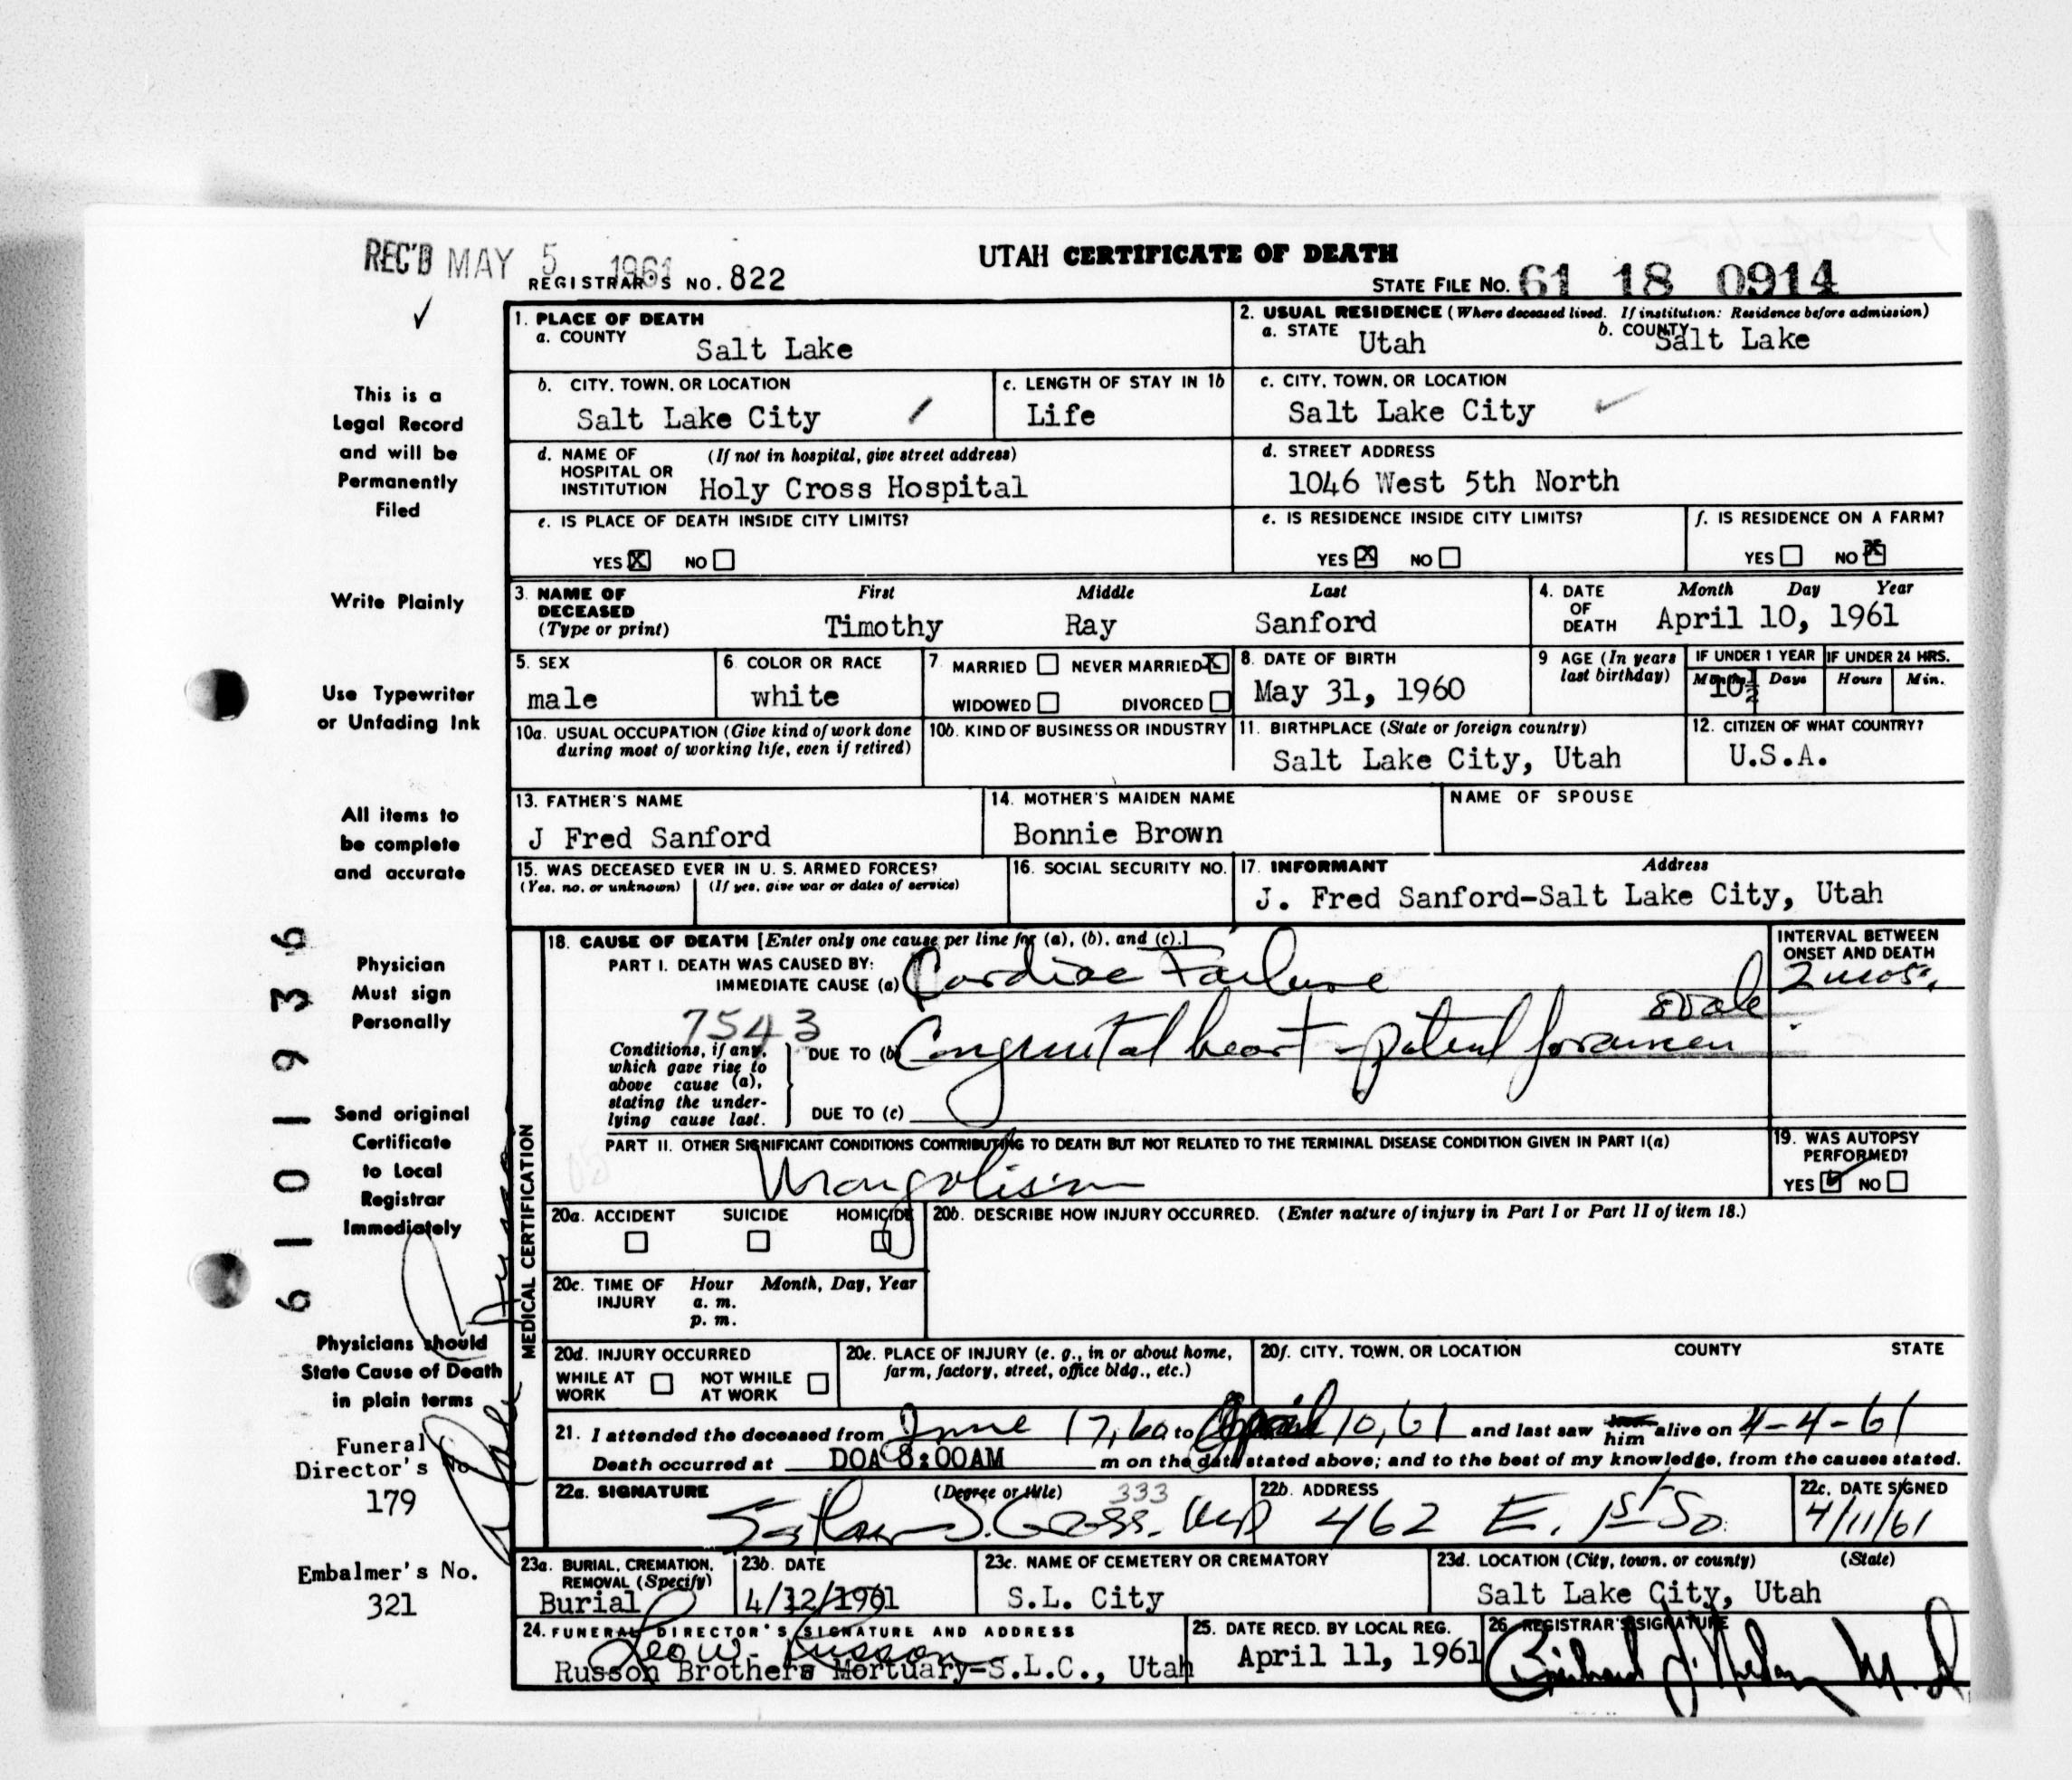 REC'D MAY 5 1961
UTAH CERTIFICATE OF DEATH
REGISTRAR'S NO. 822
STATE FILE NO. 61 18 0914
This is a
Legal Record
and will be
Permanently
Filed
Write Plainly
Use Typewriter
or Unfading Ink
All items to
be complete
and accurate
Physician
Must sign
Personally
Send original
Certificate
to Local
Registrar
Immediately
Physicians should
State Cause of Death
in plain terms
Funeral
Director's No
179
Embalmer's No.
321
6101936
1. PLACE OF DEATH
a. COUNTY
Salt Lake
2. USUAL RESIDENCE (Where deceased lived. If institution: Residence before admission)
a. STATE Utah
b. COUNTY Salt Lake
b. CITY, TOWN, OR LOCATION
Salt Lake City
c. LENGTH OF STAY IN 1b
Life
c. CITY, TOWN, OR LOCATION
Salt Lake City
d. NAME OF (If not in hospital, give street address)
HOSPITAL OR
INSTITUTION Holy Cross Hospital
d. STREET ADDRESS
1046 West 5th North
e. IS PLACE OF DEATH INSIDE CITY LIMITS?
YES X NO
e. IS RESIDENCE INSIDE CITY LIMITS?
YES X NO
f. IS RESIDENCE ON A FARM?
YES NO X
3. NAME OF
DECEASED
(Type or print)
First Middle Last
Timothy Ray Sanford
4. DATE
OF
DEATH
Month Day Year
April 10, 1961
5. SEX
male
6. COLOR OR RACE
white
7 MARRIED NEVER MARRIED X
WIDOWED DIVORCED
8. DATE OF BIRTH
May 31, 1960
9 AGE (In years
last birthday)
IF UNDER 1 YEAR
Months Days
10½
IF UNDER 24 HRS.
Hours Min.
10a. USUAL OCCUPATION (Give kind of work done
during most of working life, even if retired)
10b. KIND OF BUSINESS OR INDUSTRY
11. BIRTHPLACE (State or foreign country)
Salt Lake City, Utah
12. CITIZEN OF WHAT COUNTRY?
U.S.A.
13. FATHER'S NAME
J Fred Sanford
14. MOTHER'S MAIDEN NAME
Bonnie Brown
NAME OF SPOUSE
15. WAS DECEASED EVER IN U. S. ARMED FORCES?
(Yes, no, or unknown) (If yes, give war or dates of service)
16. SOCIAL SECURITY NO.
17. INFORMANT Address
J. Fred Sanford-Salt Lake City, Utah
MEDICAL CERTIFICATION
18. CAUSE OF DEATH [Enter only one cause per line for (a), (b), and (c).]
PART I. DEATH WAS CAUSED BY:
IMMEDIATE CAUSE (a) Cardiac Failure
INTERVAL BETWEEN
ONSET AND DEATH
2 mos.
7543
Conditions, if any,
which gave rise to
above cause (a),
stating the under-
lying cause last.
DUE TO (b) Congenital heart - patent foramen ovale
DUE TO (c)
PART II. OTHER SIGNIFICANT CONDITIONS CONTRIBUTING TO DEATH BUT NOT RELATED TO THE TERMINAL DISEASE CONDITION GIVEN IN PART I(a)
Mongolism
19. WAS AUTOPSY
PERFORMED?
YES ✓ NO
20a. ACCIDENT SUICIDE HOMICIDE
20b. DESCRIBE HOW INJURY OCCURRED. (Enter nature of injury in Part I or Part II of item 18.)
20c. TIME OF INJURY
Hour Month, Day, Year
a. m.
p. m.
20d. INJURY OCCURRED
WHILE AT WORK NOT WHILE AT WORK
20e. PLACE OF INJURY (e. g., in or about home,
farm, factory, street, office bldg., etc.)
20f. CITY, TOWN, OR LOCATION COUNTY STATE
21. I attended the deceased from June 17, 60 to April 10, 61 and last saw him alive on 4-4-61
Death occurred at DOA 8:00AM m on the date stated above; and to the best of my knowledge, from the causes stated.
22a. SIGNATURE (Degree or title)
333
J. Gross. MD
22b. ADDRESS
462 E. 1st So.
22c. DATE SIGNED
4/11/61
23a. BURIAL, CREMATION,
REMOVAL (Specify)
Burial
23b. DATE
4/12/1961
23c. NAME OF CEMETERY OR CREMATORY
S.L. City
23d. LOCATION (City, town, or county) (State)
Salt Lake City, Utah
24. FUNERAL DIRECTOR'S SIGNATURE AND ADDRESS
Leo W. Russon
Russon Brothers Mortuary-S.L.C., Utah
25. DATE RECD. BY LOCAL REG.
April 11, 1961
26. REGISTRAR'S SIGNATURE
M.D.